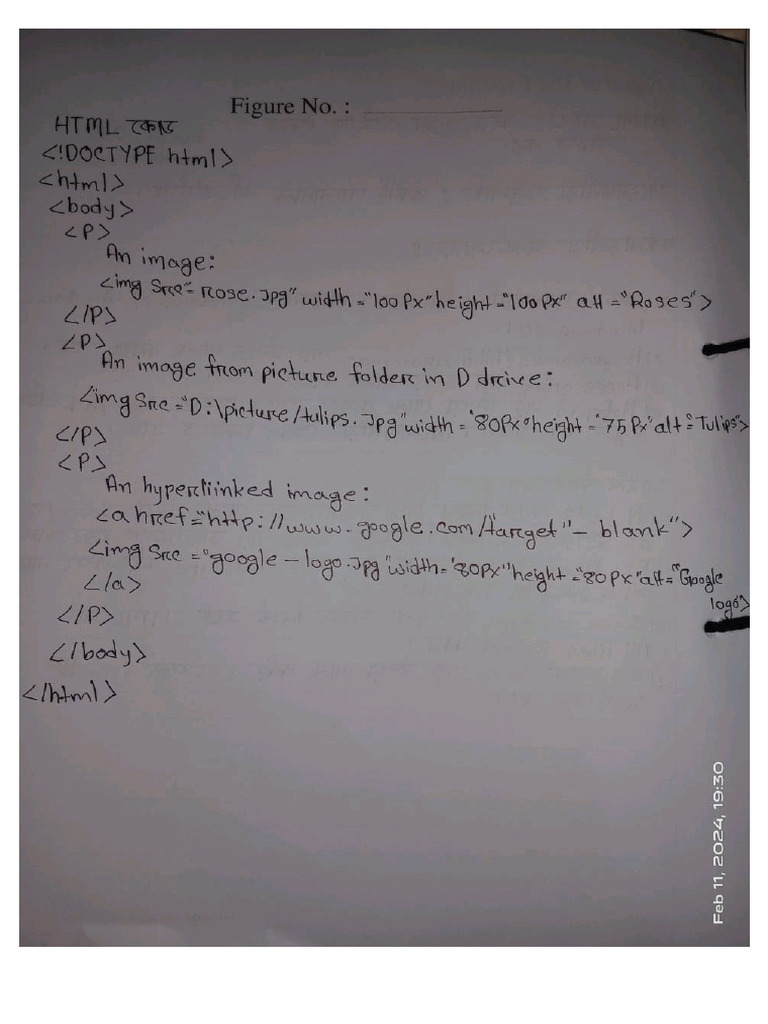 Figure No. :
HTML কোড
<!DOCTYPE html>
<html>
<body>
<P>
An image:
<img Src"= rose.Jpg" width ="100 Px" height ="100 Px" alt ="Roses">
</P>
<P>
An image from picture folder in D drive:
<img Src ="D:\picture/tulips.Jpg" width = "80Px" height = "75 Px" alt = "Tulips">
</P>
<P>
An hyperliinked image:
<a href="http://www.google.com/"target"_ blank">
<img Src = "google – logo.Jpg "width= "80PX" height ="80 PX" alt="Google
logo">
</a>
</P>
</body>
</html>
Feb 11, 2024, 19:30